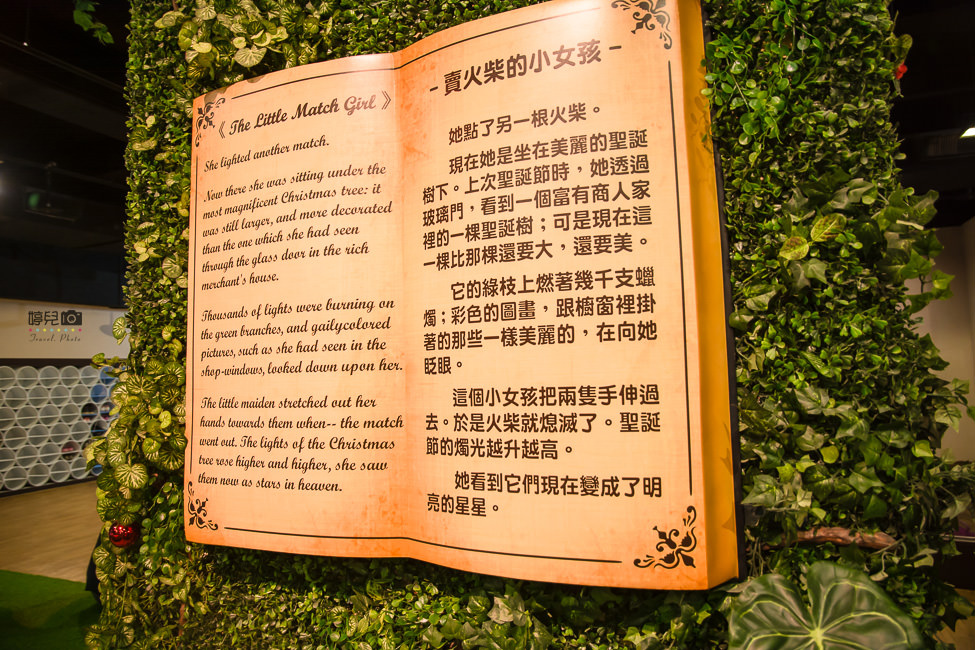 《 The Little Match Girl 》
She lighted another match.
Now there she was sitting under the
most magnificent Christmas tree: it
was still larger, and more decorated
than the one which she had seen
through the glass door in the rich
merchant's house.
Thousands of lights were burning on
the green branches, and gailycolored
pictures, such as she had seen in the
shop-windows, looked down upon her.
The little maiden stretched out her
hands towards them when-- the match
went out. The lights of the Christmas
tree rose higher and higher, she saw
them now as stars in heaven.
- 賣火柴的小女孩 -
她點了另一根火柴。
現在她是坐在美麗的聖誕
樹下。上次聖誕節時，她透過
玻璃門，看到一個富有商人家
裡的一棵聖誕樹；可是現在這
一棵比那棵還要大，還要美。
它的綠枝上燃著幾千支蠟
燭；彩色的圖畫，跟櫥窗裡掛
著的那些一樣美麗的，在向她
眨眼。
這個小女孩把兩隻手伸過
去。於是火柴就熄滅了。聖誕
節的燭光越升越高。
她看到它們現在變成了明
亮的星星。
婷兒
Travel. Photo